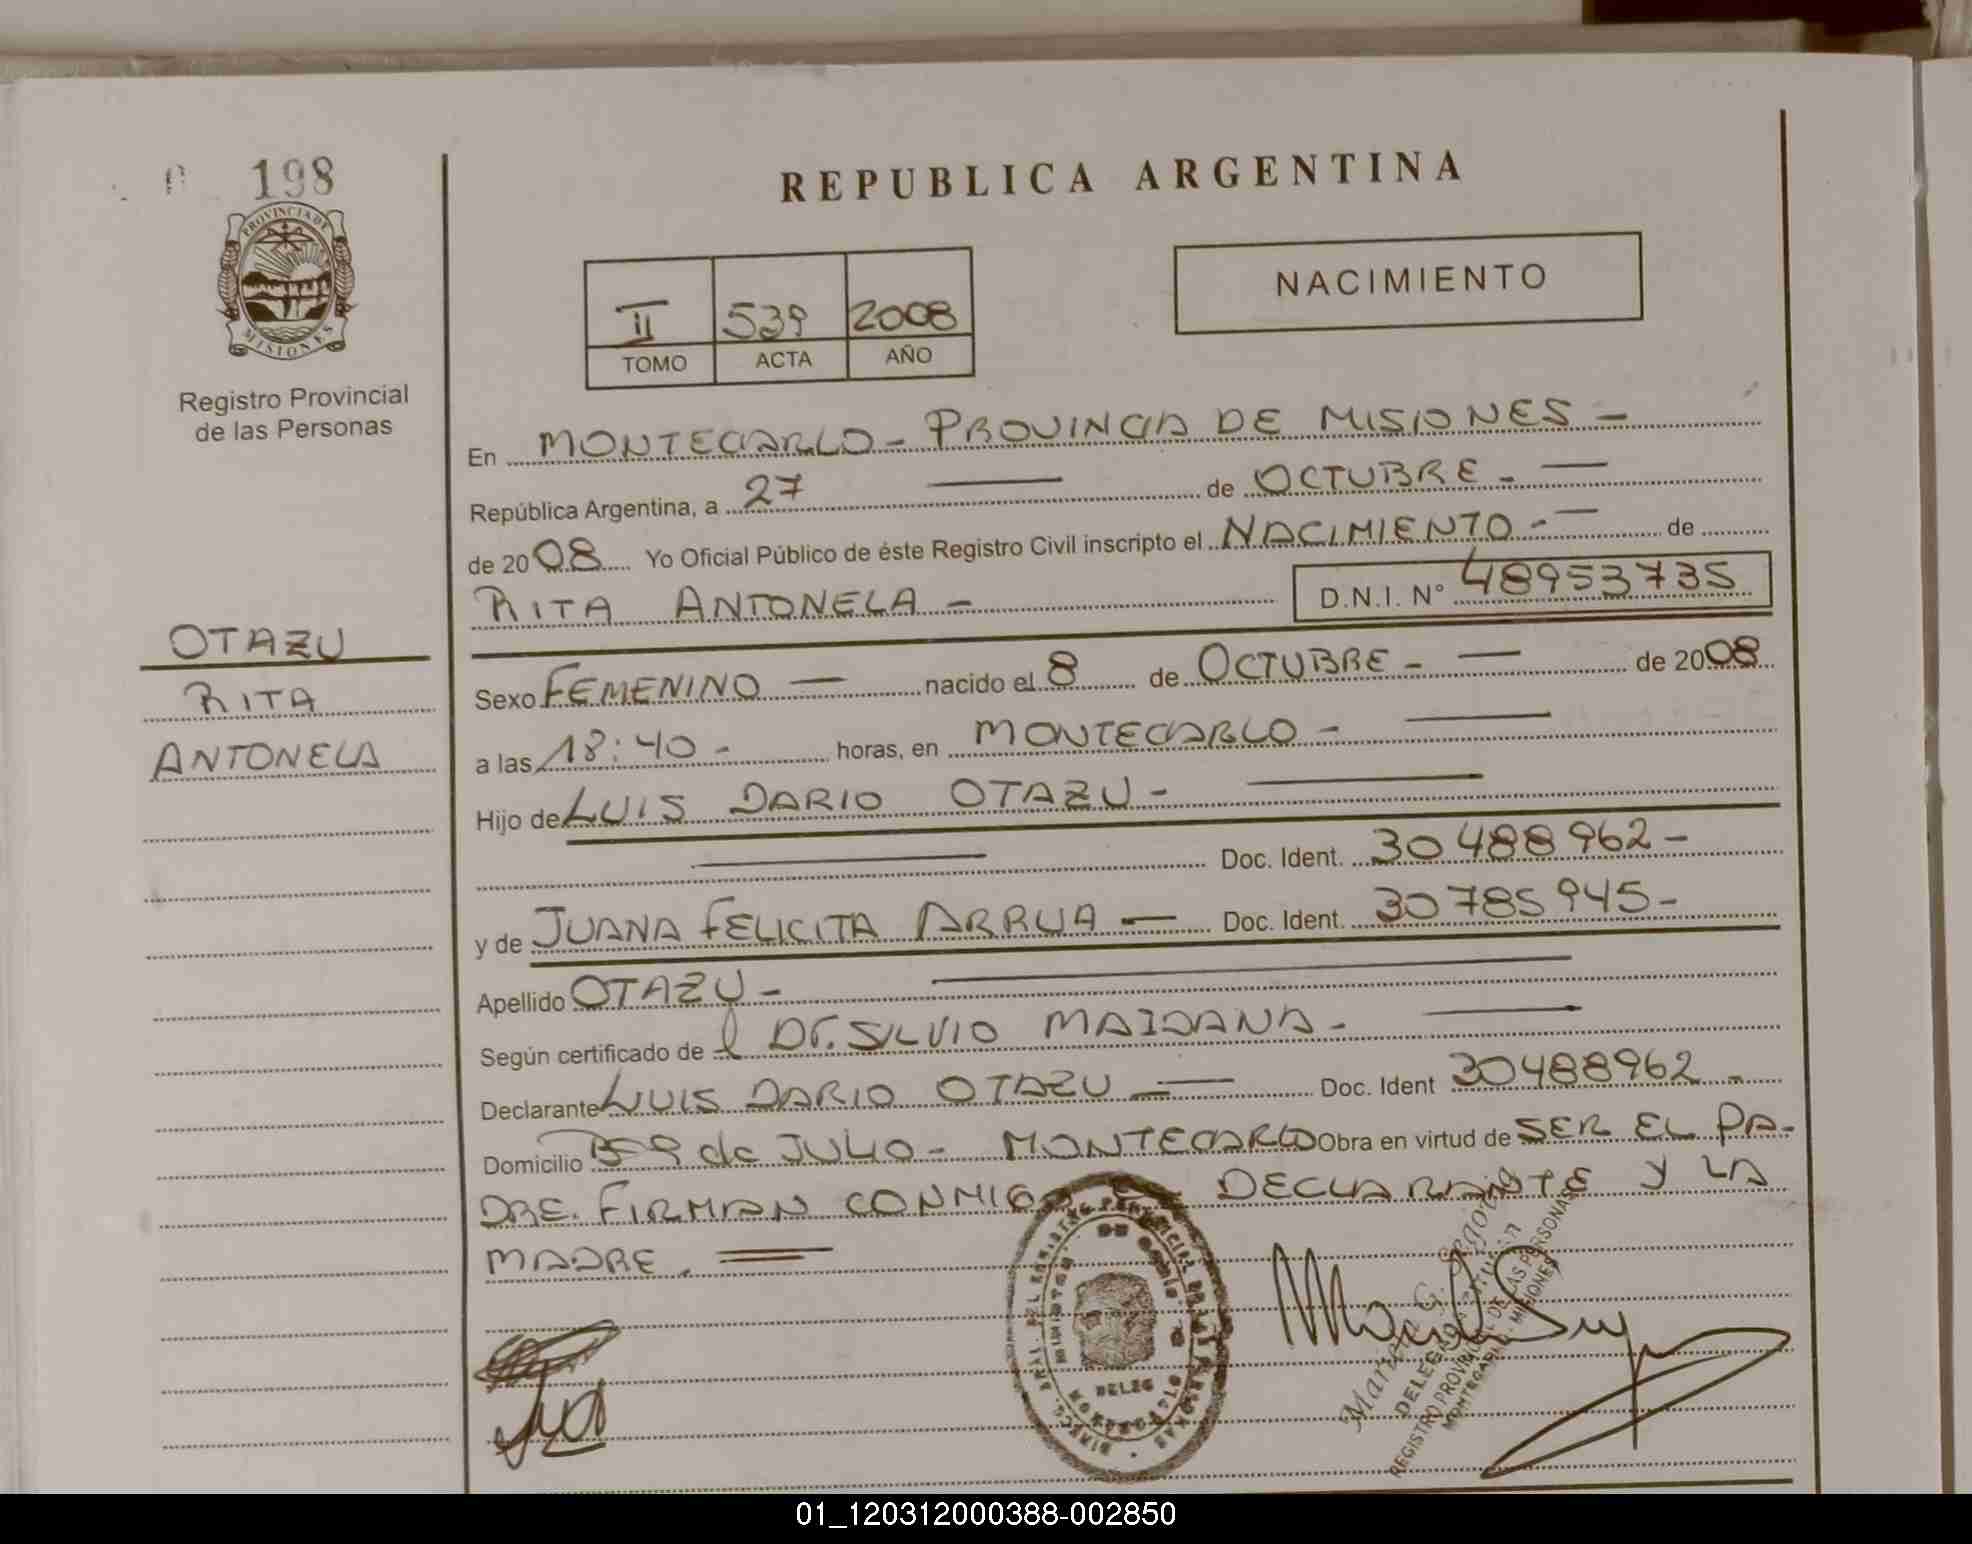 198
PROVINCIA DE
MISIONES
Registro Provincial
de las Personas
OTAZU
RITA
ANTONELA
REPUBLICA ARGENTINA
II 539 2008
TOMO ACTA AÑO
NACIMIENTO
En MONTECARLO - PROVINCIA DE MISIONES -
República Argentina, a 27 de OCTUBRE -
de 2008 Yo Oficial Público de éste Registro Civil inscripto el NACIMIENTO - de
RITA ANTONELA - D.N.I. N° 48953735
Sexo FEMENINO nacido el 8 de OCTUBRE - de 2008
a las 18:40 - horas, en MONTECARLO -
Hijo de LUIS DARIO OTAZU -
Doc. Ident. 30488962 -
y de JUANA FELICITA ARRUA Doc. Ident. 30785945 -
Apellido OTAZU -
Según certificado de l Dr. SILVIO MAIDANA -
Declarante LUIS DARIO OTAZU Doc. Ident 30488962 -
Domicilio Bº 9 de JULIO - MONTECARLO Obra en virtud de SER EL PA-
DRE. FIRMAN CONMIGO EL DECLARANTE Y LA
MADRE.
REGISTRO PROVINCIAL DE LAS PERSONAS
MONTECARLO MISIONES
01_120312000388-002850